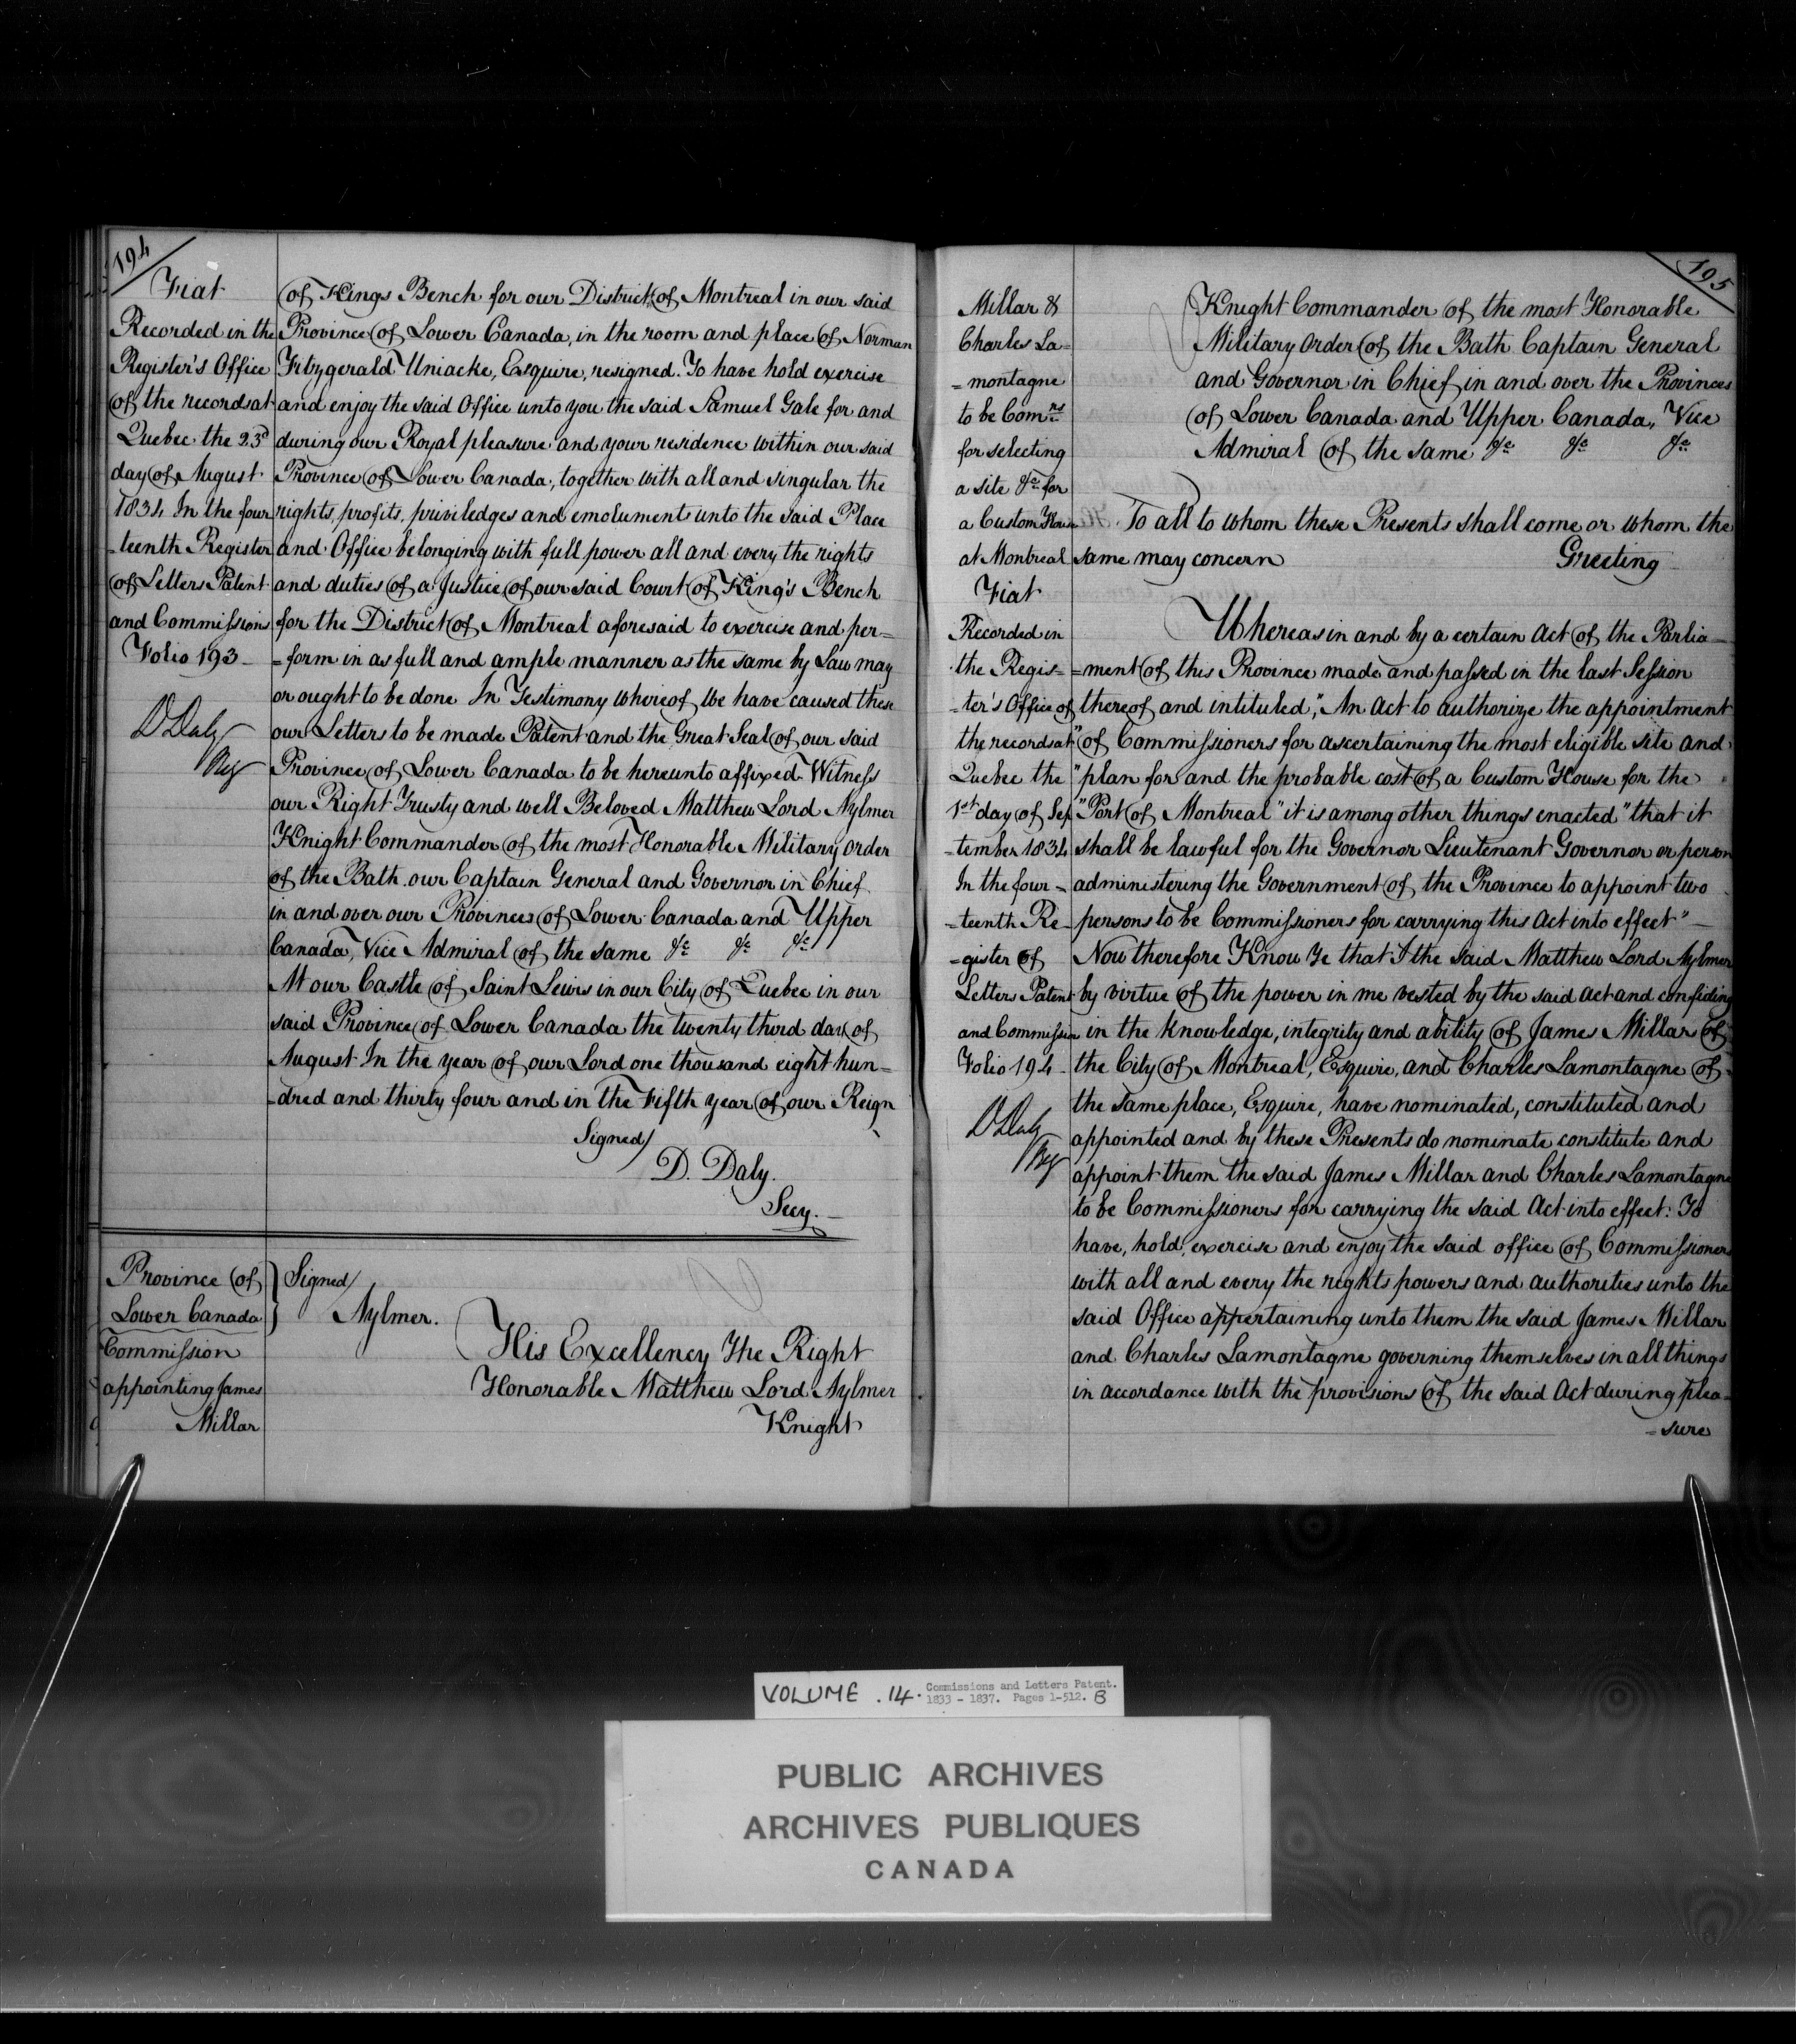 194
Fiat
Recorded in the
Register's Office
of the records at
Quebec the 23d
day of August
1834 In the four
-teenth Register
of Letters Patent
and Commissions
Folio 193 -
D Daly
Reg
of Kings Bench for our District of Montreal in our said
Province of Lower Canada, in the room and place of Norman
Fitzgerald Uniacke, Esquire, resigned. To have hold exercise
and enjoy the said Office unto you the said Samuel Gale for and
during our Royal pleasure and your residence within our said
Province of Lower Canada, together with all and singular the
rights, profits, priviledges and emoluments unto the said Place
and Office belonging with full power all and every the rights
and duties of a Justice of our said Court of King's Bench
for the District of Montreal aforesaid to exercise and per=
=form in as full and ample manner as the same by Law may
or ought to be done In Testimony whereof We have caused these
our Letters to be made Patent and the Great Seal of our said
Province of Lower Canada to be hereunto affixed Witness
our Right Trusty and well Beloved Matthew Lord Aylmer
Knight Commander of the most Honorable Military Order
of the Bath our Captain General and Governor in Chief
in and over our Provinces of Lower Canada and Upper
Canada, Vice Admiral of the same &c &c &c
At our Castle of Saint Lewis in our City of Quebec in our
said Province of Lower Canada the twenty third day of
August In the year of our Lord one thousand eight hun=
-dred and thirty four and in the Fifth year of our Reign
Signed/
D. Daly.
Secy. -
Province of
Lower Canada
Commission
appointing James
Millar
Signed/
Aylmer.
His Excellency The Right
Honorable Matthew Lord Aylmer
Knight
195
Millar &
Charles La=
=montagne
to be Comrs
for selecting
a site &c for
a Custom House
at Montreal
Fiat
Recorded in
the Regis-
-ter's Office of
the records at
Quebec the
1st day of Sep
-tember 1834
In the four -
-teenth Re-
=gister of
Letters Patent
and Commission
Folio 194 -
D Daly
Reg
Knight Commander of the most Honorable
Military Order of the Bath Captain General
and Governor in Chief in and over the Provinces
of Lower Canada and Upper Canada, Vice
Admiral of the same &c &c &c
To all to whom these Presents shall come or whom the
same may concern Greeting
Whereas in and by a certain Act of the Parlia-
=ment of this Province made and passed in the last Session
thereof and intituled, "An Act to authorize the appointment
"of Commissioners for ascertaining the most eligible site and
"plan for and the probable cost of a Custom House for the
"Port of Montreal" it is among other things enacted "that it
shall be lawful for the Governor Lieutenant Governor or person
administering the Government of the Province to appoint two
persons to be Commissioners for carrying this Act into effect" -
Now therefore Know Ye that I the said Matthew Lord Aylmer
by virtue of the power in me vested by the said Act and confiding
in the Knowledge, integrity and ability of James Millar of
the City of Montreal, Esquire, and Charles Lamontagne of
the same place, Esquire, have nominated, constituted and
appointed and by these Presents do nominate constitute and
appoint them the said James Millar and Charles Lamontagne
to be Commissioners for carrying the said Act into effect: To
have, hold, exercise and enjoy the said office of Commissioners
with all and every the rights powers and authorities unto the
said Office appertaining unto them the said James Millar
and Charles Lamontagne governing themselves in all things
in accordance with the provisions of the said Act during plea=
=sure
VOLUME .14. Commissions and Letters Patent.
1833 - 1837. Pages 1-512. B
PUBLIC ARCHIVES
ARCHIVES PUBLIQUES
CANADA